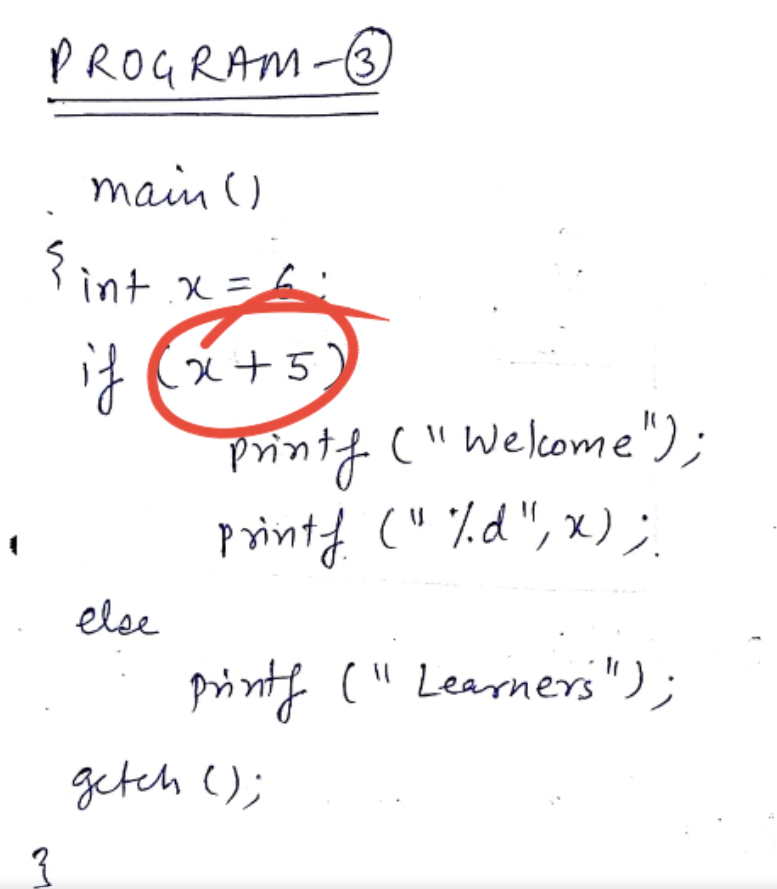 PROGRAM-③
main()
{ int x = 6;
if (x + 5)
printf ("Welcome");
printf ("%d", x);
else
printf ("Learners");
getch ();
}